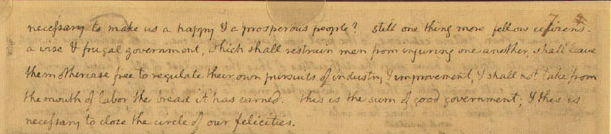 necessary to make us a happy & a prosperous people? still one thing more fellow citizens.
a wise & frugal government, which shall restrain men from injuring one another, shall leave
them otherwise free to regulate their own pursuits of industry & improvement, & shall not take from
the mouth of labor the bread it has earned. this is the sum of good government, & this is
necessary to close the circle of our felicities.